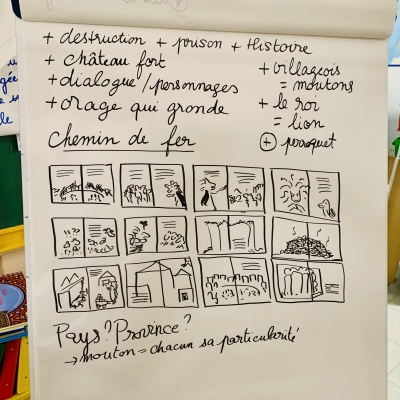 + destruction + prison + Histoire
+ château fort
+ dialogue / personnages
+ orage qui gronde
+ villageois
= moutons
+ le roi
= lion
+ perroquet
Chemin de fer
Pays? Province?
→ mouton = chacun sa particularité